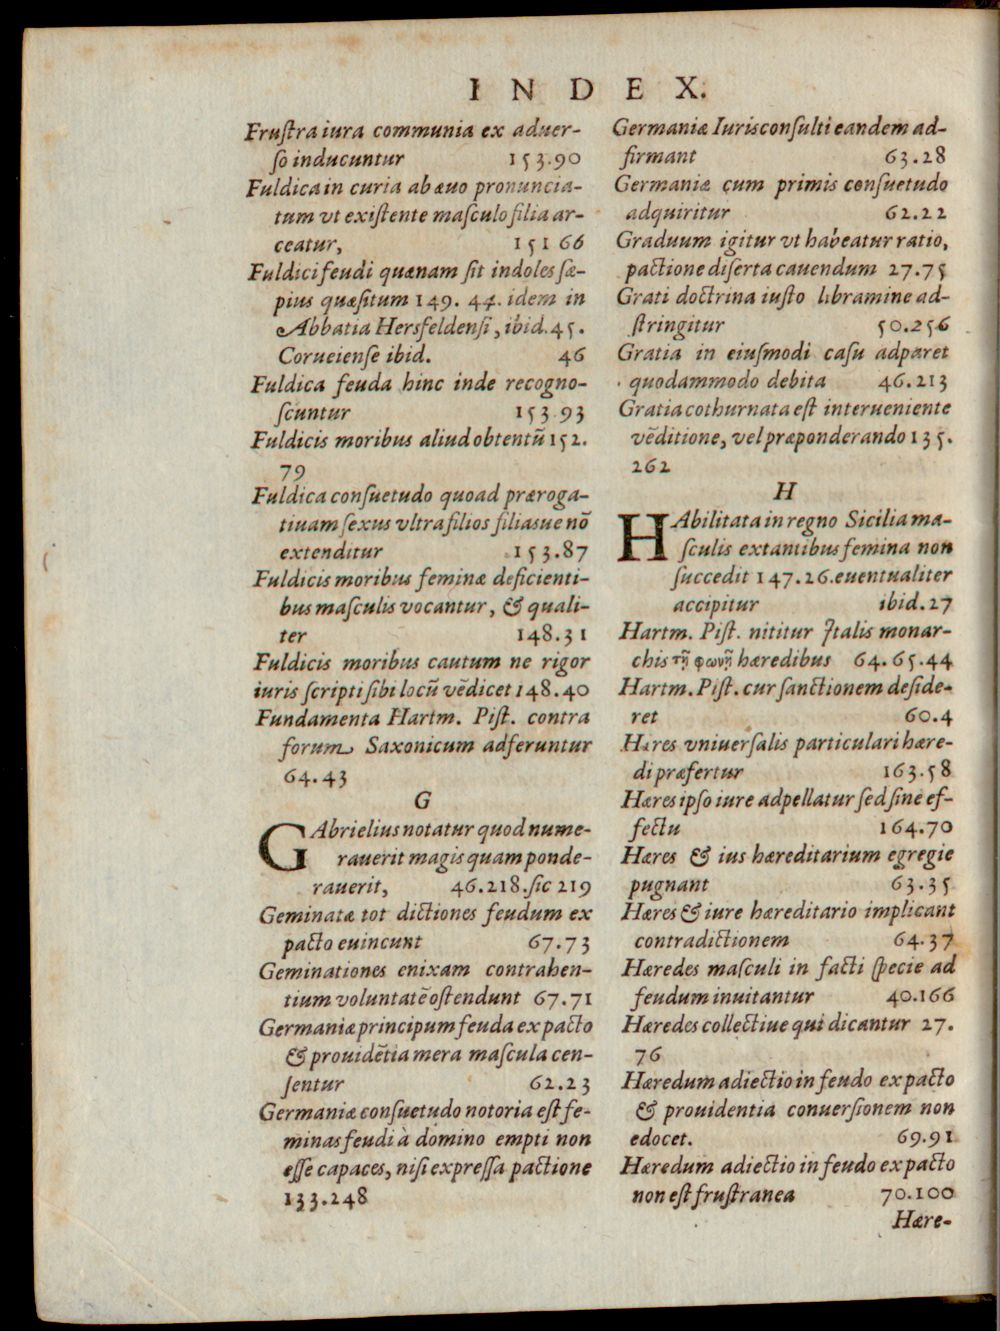 INDEX.
Fruſtra iura communia ex aduer-
ſo inducuntur 153.90
Fuldica in curia ab æuo pronuncia-
tum vt exiſtente maſculo filia ar-
ceatur, 151 66
Fuldici feudi quænam ſit indoles ſæ-
pius quæſitum 149. 44. idem in
Abbatia Hersfeldenſi, ibid. 45.
Corueienſe ibid. 46
Fuldica feuda hinc inde recogno-
ſcuntur 153.93
Fuldicis moribus aliud obtentū 152.
79
Fuldica conſuetudo quoad præroga-
tiuam ſexus vltra filios filiasue nō
extenditur 153.87
Fuldicis moribus feminæ deficienti-
bus maſculis vocantur, & quali-
ter 148.31
Fuldicis moribus cautum ne rigor
iuris ſcripti ſibi locū vēdicet 148.40
Fundamenta Hartm. Piſt. contra
forum Saxonicum adferuntur
64.43
G
GAbrielius notatur quod nume-
rauerit magis quam ponde-
rauerit, 46.218. ſic 219
Geminatæ tot dictiones feudum ex
pacto euincunt 67.73
Geminationes enixam contrahen-
tium voluntatē oſtendunt 67.71
Germaniæ principum feuda ex pacto
& prouidētia mera maſcula cen-
ſentur 62.23
Germaniæ conſuetudo notoria eſt fe-
minas feudi à domino empti non
eſſe capaces, niſi expreſſa pactione
133.248
Germaniæ Iurisconſulti eandem ad-
firmant 63.28
Germaniæ cum primis conſuetudo
adquiritur 62.22
Graduum igitur vt habeatur ratio,
pactione diſerta cauendum 27.75
Grati doctrina iuſto libramine ad-
ſtringitur 50.256
Gratia in eiuſmodi caſu adparet
quodammodo debita 46.213
Gratia cothurnata eſt interueniente
vēditione, vel præponderando 135.
262
H
HAbilitata in regno Sicilia ma-
ſculis extantibus femina non
ſuccedit 147.26. euentualiter
accipitur ibid. 27
Hartm. Piſt. nititur Italis monar-
chis τῇ φωνῇ hæredibus 64. 65.44
Hartm. Piſt. cur ſanctionem deſide-
ret 60.4
Hæres vniuerſalis particulari hære-
di præfertur 163.58
Hæres ipſo iure adpellatur ſed ſine ef-
fectu 164.70
Hæres & ius hæreditarium egregie
pugnant 63.35
Hæres & iure hæreditario implicant
contradictionem 64.37
Hæredes maſculi in facti ſpecie ad
feudum inuitantur 40.166
Hæredes collectiue qui dicantur 27.
76
Hæredum adiectio in feudo ex pacto
& prouidentia conuerſionem non
edocet. 69.91
Hæredum adiectio in feudo ex pacto
non eſt fruſtranea 70.100
Hære-